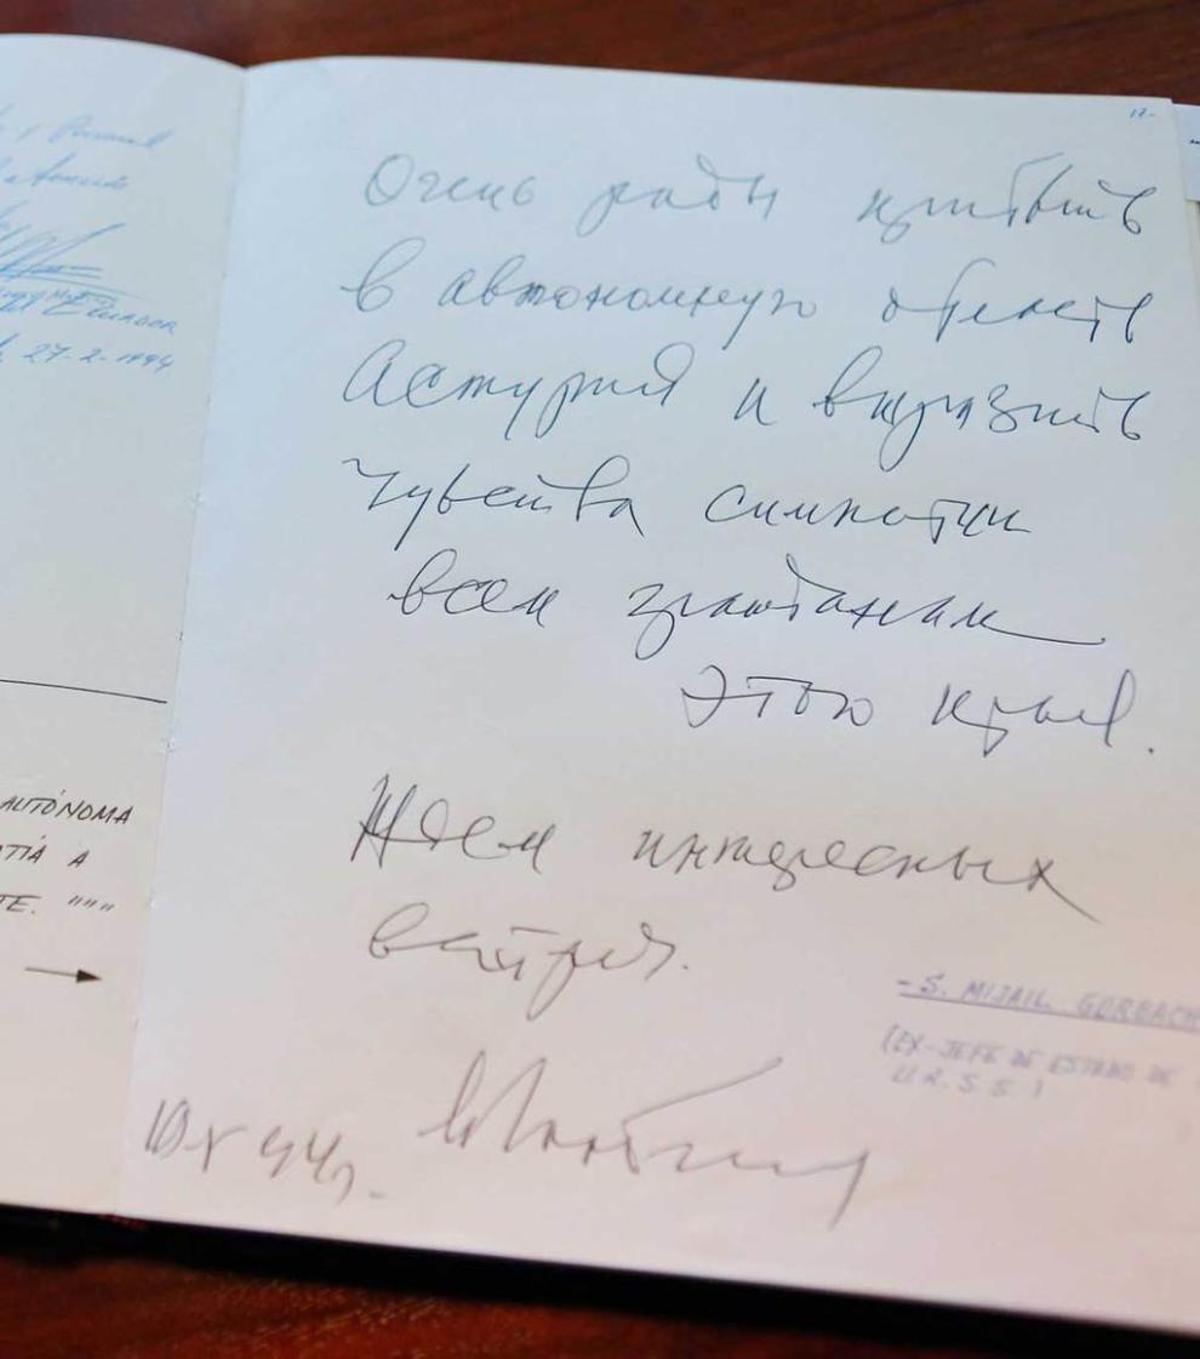 27-2-1994
AUTÓNOMA
A
TE. """
17-
Очень рады прибыть
в автономную область
Астурия и выразить
чувства симпатии
всем гражданам
этого края.
Ждем интересных
встреч.
- S. MIJAIL GORBACH
(EX-JEFE DE ESTADO DE
U.R.S.S.)
94г.